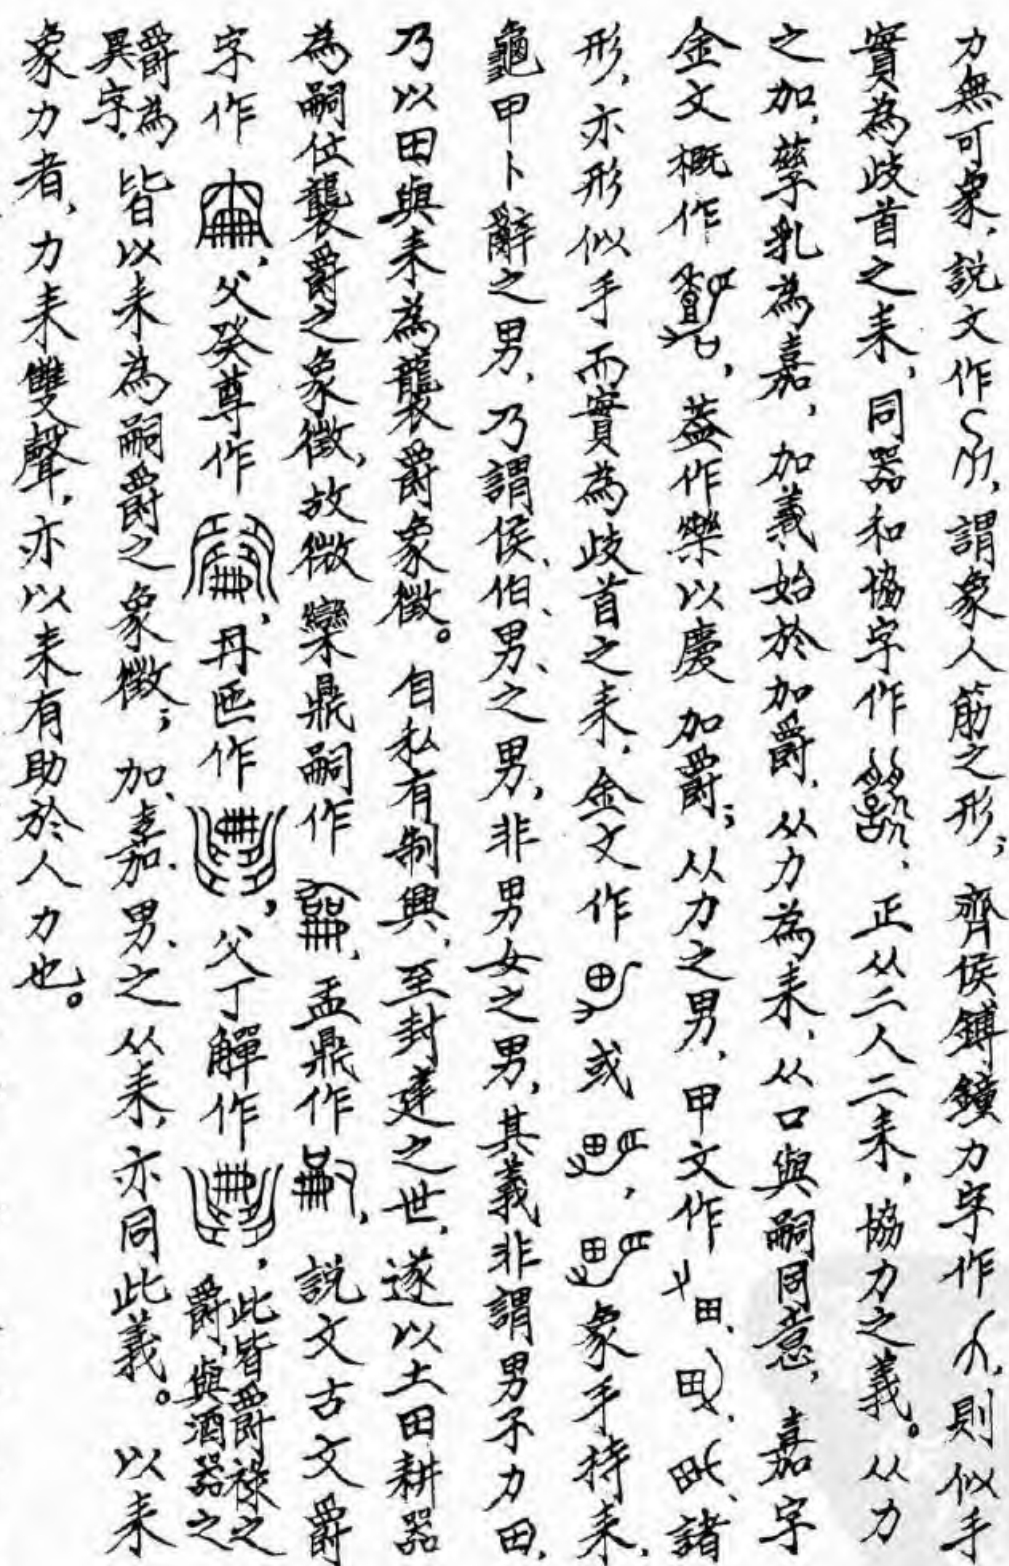 力無可象，說文作，謂象人筋之形；齊侯鎛鐘力字作，則似手
實為歧首之耒，同器和協字作，正从二人二耒，協力之義。从力
之加，孳乳為嘉，加義始於加爵，从力為耒，从口與嗣同意，嘉字
金文概作，蓋作樂以慶加爵；从力之男，甲文作、、、諸
形，亦形似手而實為歧首之耒，金文作或，象手持耒，
龜甲卜辭之男，乃謂侯、伯、男、之男，非男女之男，其義非謂男子力田，
乃以田與耒為襲爵象徵。自私有制興，至封建之世，遂以土田耕器
為嗣位襲爵之象徵，故微欒鼎嗣作，盂鼎作，說文古文爵
字作，父癸尊作，丹匜作，父丁觶作，此皆爵祿之爵，與酒器之
爵為異字。皆以耒為嗣爵之象徵；加、嘉、男、之从耒，亦同此義。以耒
象力者，力耒雙聲，亦以耒有助於人力也。